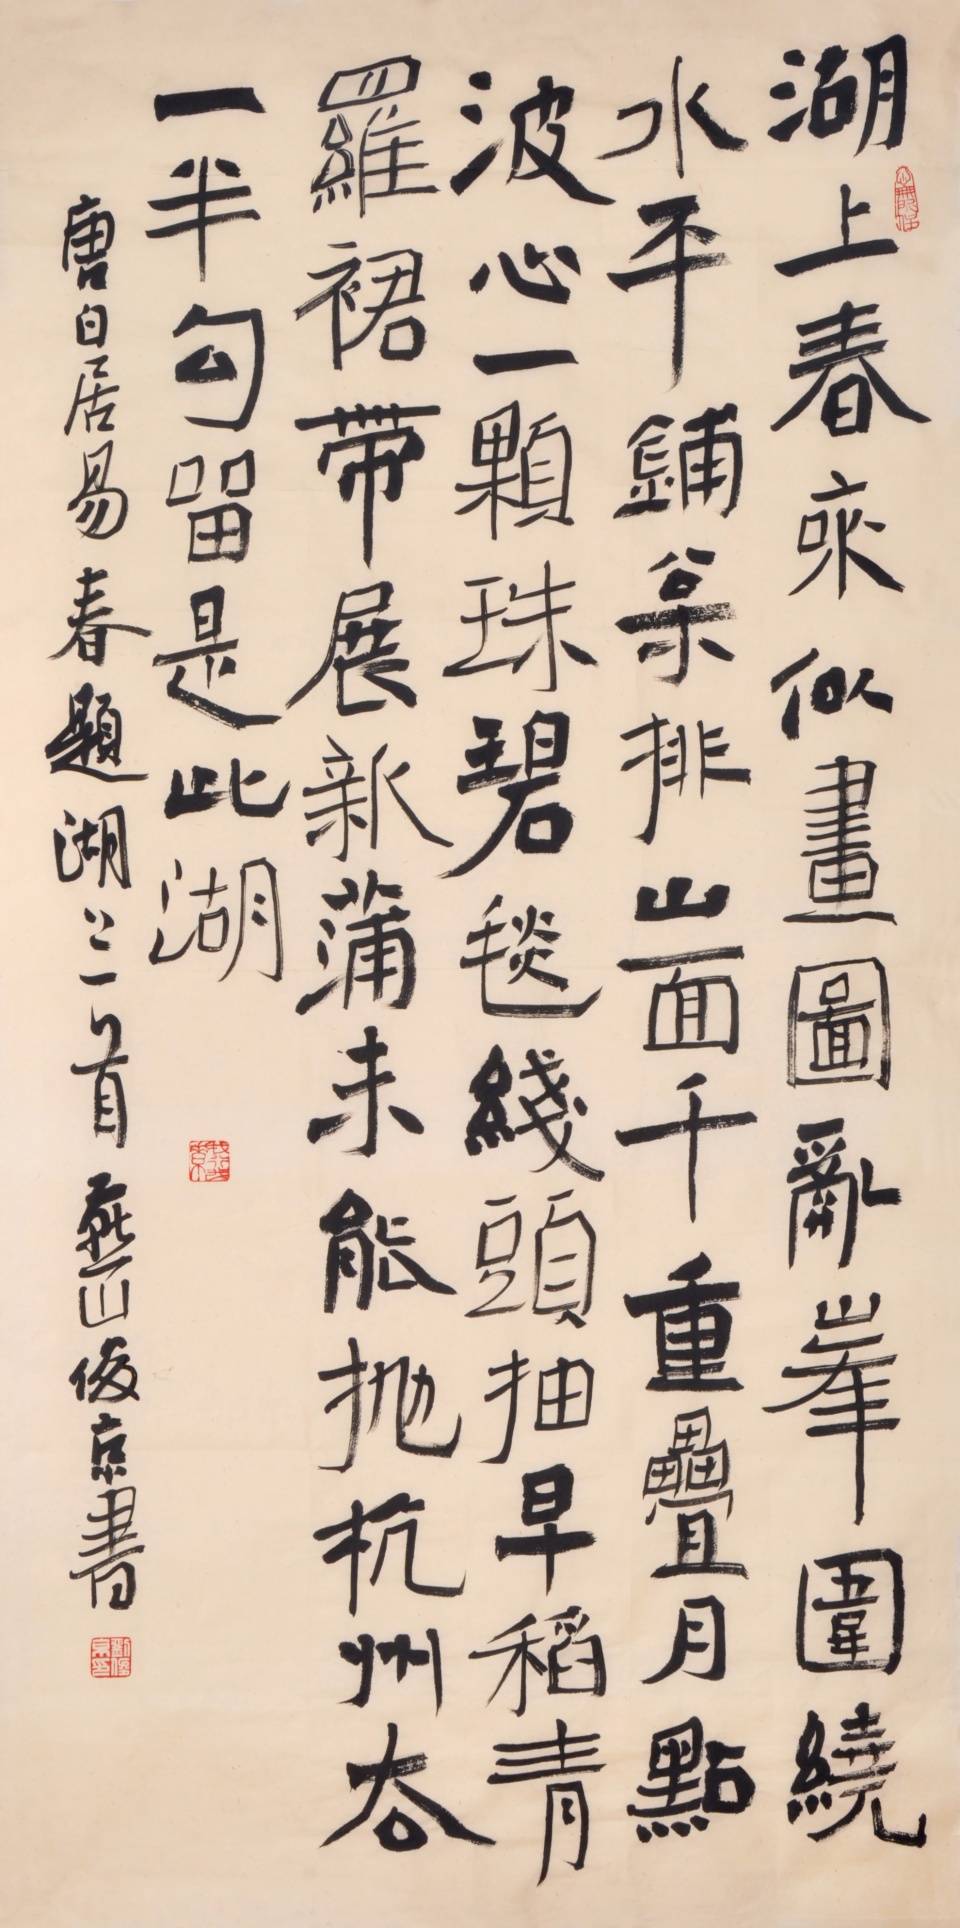 湖上春來似畫圖亂峯圍繞
水平鋪枀排山面千重疊月點
波心一顆珠碧毯綫頭抽早稻青
羅裙帶展新蒲未能拋杭州厺
一半勾留是此湖
唐白居易春題湖上一首 燕山俊京書